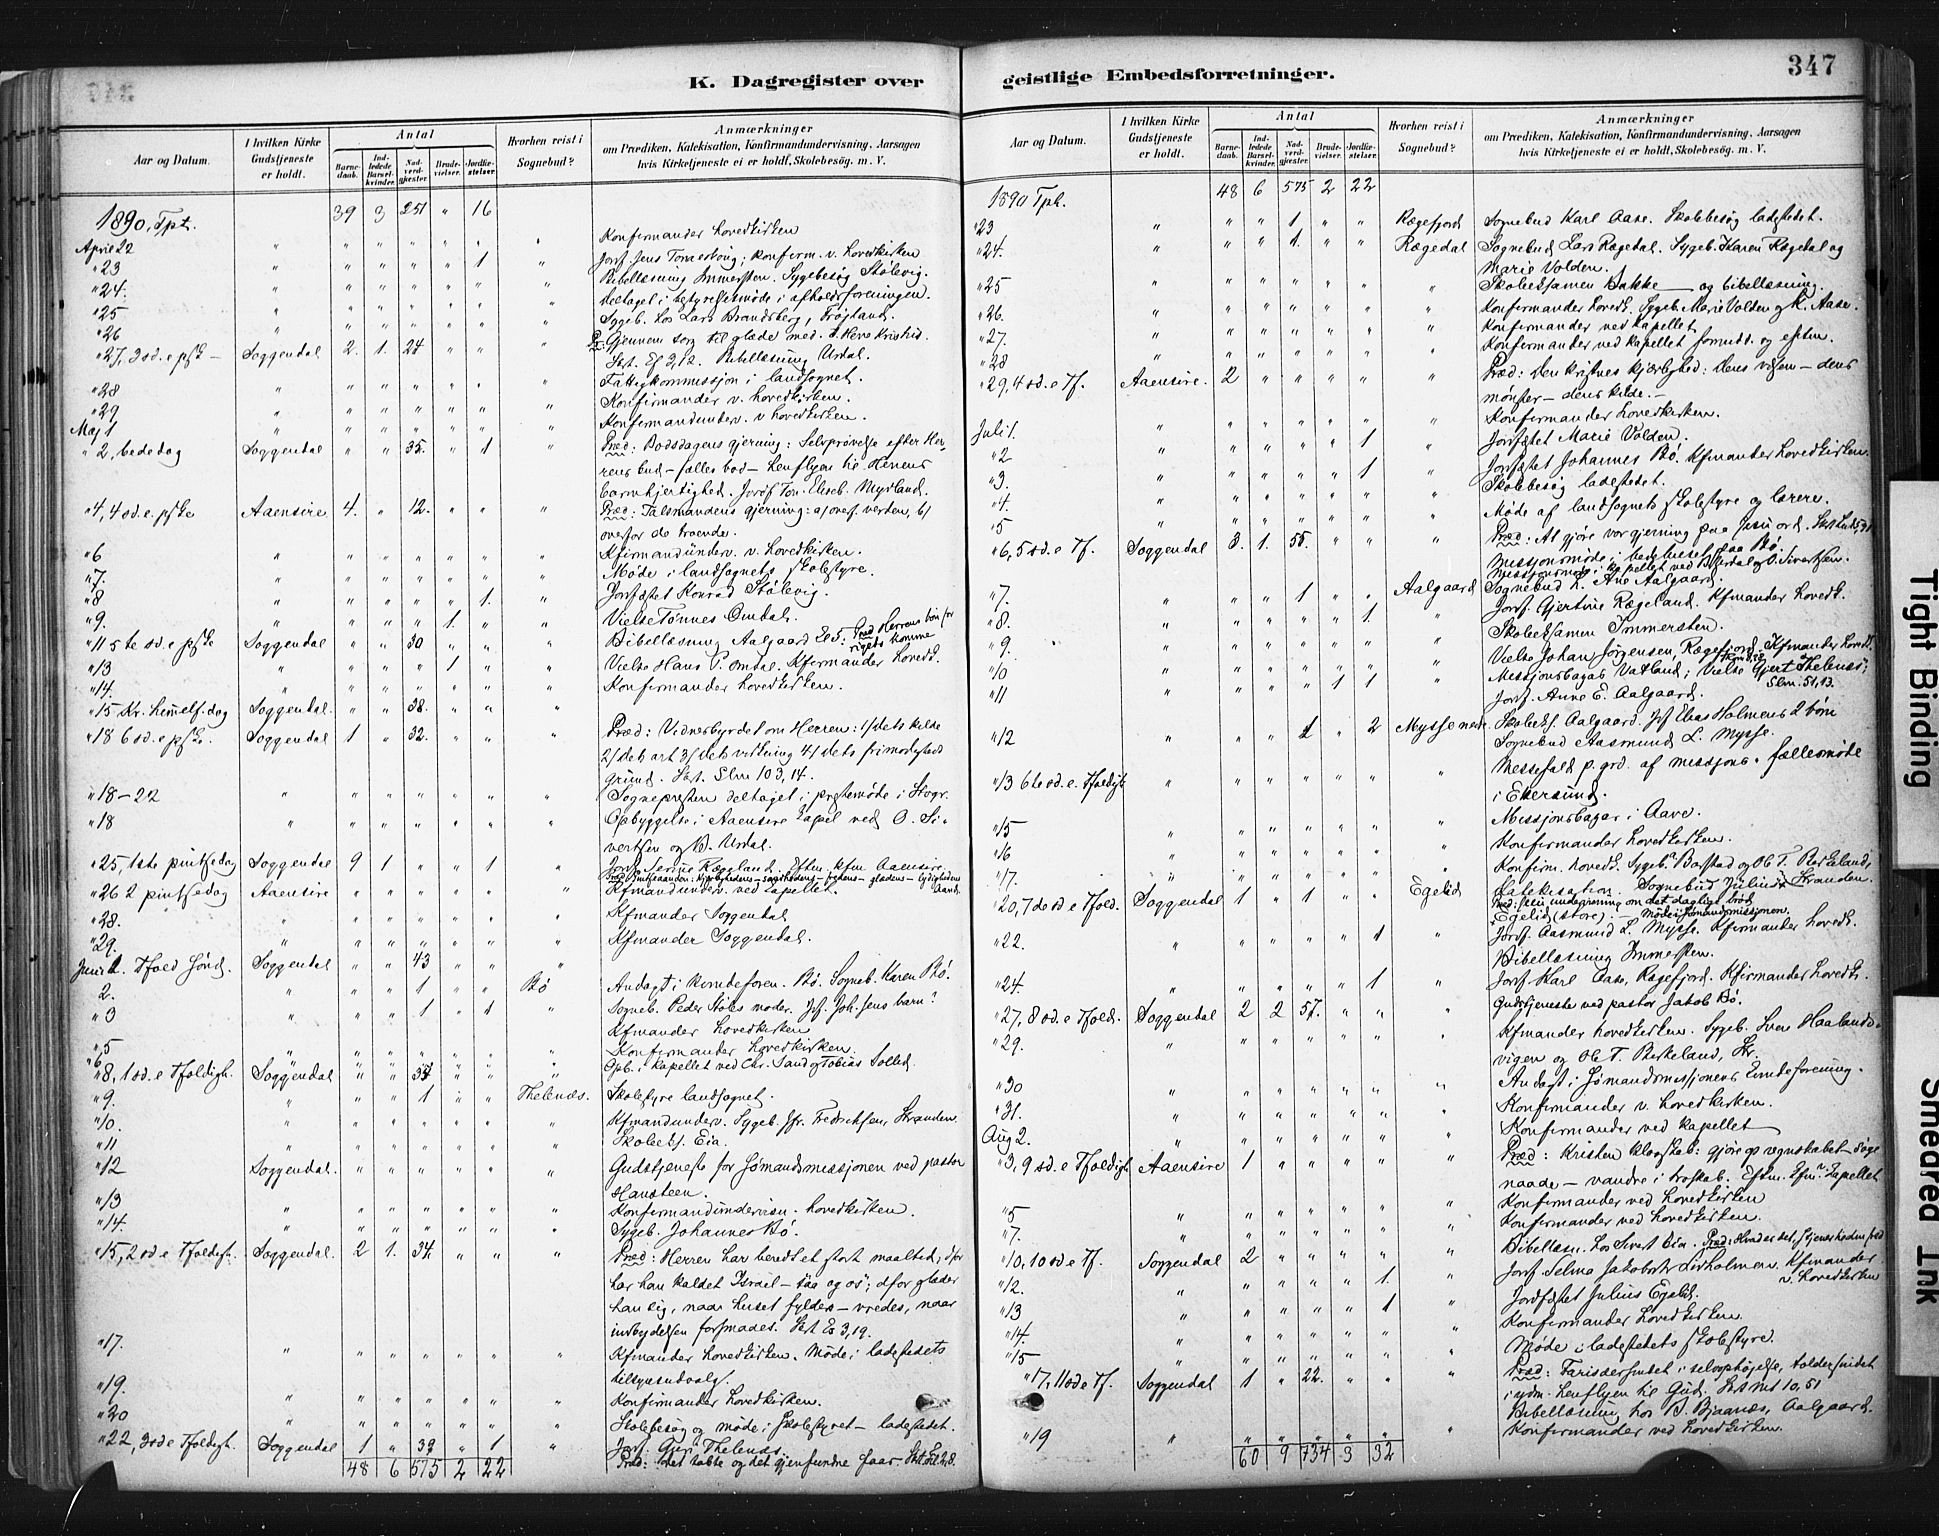 K. Dagregister over
Aar og Datum. I hvilken Kirke Gudstjeneste er holdt. Antal Barnedaab. Indledede Barselkvinder. Nadverdgjester. Brudevielser. Jordfæstelser. Hvorhen reist i Sognebud? Anmærkninger om Prædiken, Katekisation, Konfirmandundervisning, Aarsagen hvis Kirketjeneste ei er holdt, Skolebesøg. m. V.
1890, Tpt. 39 3 251 " 16
April 22 Konfirmander hovedkirken
" 23 " " " " " 1 " Jordf. Jens Tonnesborg; konfirm. v. hovedkirken
" 24. Bibellæsning Immersten. Sygebesøg Stølevig.
" 25 Deltaget i bestyrelsesmøde i afholdsforeningen.
" 26 Sygeb. hos Lars Brandsberg, Frøjland.
" 27, 3 sd. e. pske Soggendal 2. 1. 24 " " " Pr: Gjennem sorg til glæde med d. Herre Kristus.
Skt. Ef 3,12. Bibellæsning Urdal.
" 28 Fattigkommissjon i landsognet.
" 29 Konfirmander v. hovedkirken.
Maj 1 Konfirmandunderv. v hovedkirken.
" 2, bededag Soggendal " " 35. " 1 " Præd: Bodsdagens gjerning: Selvprøvelse efter Herrens bud – fælles bod – henflyen til Herrens
barmhjertighed. Jordf Ton. Eliseb. Mydland.
" 4, 4 sd. e. pske Aaensire 4. " 12. " " " Præd: Talsmandens gjerning: a) overf. verden, b)
overfor de troende.
" 6 Kfirmandunderv. v. hovedkirken.
" 7. Møde i landsognets skolestyre.
" 8 " " " " 1. " Jordfæstet Konrad Stølevig.
" 9. " " " 1 " " Vielse Tønnes Omdal.
" 11 5te sd. e. pske Soggendal " " 30 " " " Bibellæsning Aalgaard Es 5. Præd Herrens bøn for rigets komme
" 13 " " " 1 " " Vielse Hans P. Omdal. Kfirmander hovedk.
" 14. Konfirmander hovedkirken.
" 15 Kr. himelf. dag Soggendal. " " 38. " " "
" 18 6 sd. e pske. Soggendal 1 " 32. " " " Præd: Vidnesbyrdet om Herren: 1) dets kilde
2) dets art 3) dets virkning 4) dets frimodigheds
grund. Skt. Slm 103, 14.
" 18–22 Sognepresten deltaget i prestemøde i Stvgr.
" 18 Opbyggelse i Aaensire kapel ved O. Sivertsen og B. Urdal.
" 25, 1ste pintsedag Soggendal 9 1 " " 1 " Jordf. Serine Rægeland. Eftm. kfm Aaensire.
" 26 2 pintsedag Aaensire Kfirmandunderv. ved kapellet.
" 28. Kfmander Soggendal
" 29. Kfmander Soggendal.
Juni 1. Tfold. sønd. Soggendal " " 43 " " "
2. " " 1 " " Bø Andagt i kvindeforen. Bø. Sogneb. Karen Bø.
" 3 " " 1 " 1 " Sogneb. Peder Støles moder. Jf. Joh. Jens barn?
Kfmander hovedkirken
" 5 Konfirmander hovedkirken.
" 6 Opb. i kapellet ved Chr. Sand og Tobias Solled.
" 8, 1 sd. e Tfoldigh. Soggendal
" 9. " " 1 " " Thelenæs. Skolestyre landsognet.
" 10. Kfmandunderv. Sygeb. Jfr. Fredriksen, Stranden.
" 11 Skoleks. Eia.
" 12 Soggendal. Gudstjeneste for Sømandsmissjonen ved pastor
Hansteen.
" 13 Konfirmandundervisn. hovedkirken.
" 14. Sygeb. Johannes Bø.
" 15, 2 sd. e Tfoldigh. Soggendal. 2 1. 34. " " " Præd: Herren har beredt et stort maaltid, dfor
har han kaldet Israel – saa og os; dfor glæder
han sig, naar huset fyldes – vredes, naar
indbydelsen forsmaaes. Skt Es 3, 19.
" 17. Kfmander hovedkirken. Møde i ladestedets
tilsynsudvalg.
" 19. Konfirmander hovedkirken.
" 20 Skolebesøg og møde i skolestyret – ladestedet.
" 22, 3 sd e Tfoldigh. Soggendal 1 " 39 " 1 " Jordf. Guri Thelenæs.
Præd: Det tabte og det gjenfundne faar.
48 6 575 2 22
geistlige Embedsforretninger. 347
Aar og Datum. I hvilken Kirke Gudstjeneste er holdt. Antal Barnedaab. Indledede Barselkvinder. Nadverdgjester. Brudevielser. Jordfæstelser. Hvorhen reist i Sognebud? Anmærkninger om Prædiken, Katekisation, Konfirmandundervisning, Aarsagen hvis Kirketjeneste ei er holdt, Skolebesøg. m. V.
1890 Tpt. 48 6 575 2 22
" 23 " " " 1 " " Rægefjord Sognebud Karl Aase. Skolebesøg ladestedet.
" 24. " " " 1. " " Rægedal Sognebud Lars Rægedal. Sygeb. Karen Rægedal og
Marie Volden.
" 25 Skoleksamen Bakke — og bibellæsning.
" 26. Konfirmander hovedk. Sygeb. Marie Volden og K. Aase.
" 27. Konfirmander ved kapellet
" 28 Konfirmander ved kapellet formidd. og eftm.
" 29, 4 sd. e Tf. Aaensire. 2 " " " " " Præd: Den kristnes kjærlighed: Dens væsen – dens
mønster – dens kilde. –
Juli 1. Konfirmander hovedkirken.
" 2 " " " " 1 " Jordfæstet Marie Volden.
" 3. " " " " 1 " Jordfæstet Johannes Bø. Kfmander hovedkirken.
" 4. Skolebesøg ladestedet.
" 5 Møde af landsognets skolestyre og lærere.
" 6, 5 sd. e Tf. Soggendal 3. 1. 55. " " " Præd: At gjøre vor gjerning paa Jesu ord.
Missjonsmøde i bedehuset paa Bø.
Missjonsmøde i kapellet ved B. Urdal og O. Sivertsen.
" 7. " " " 1 " " Aalgaard Sognebud t. Ane Aalgaard.
" 8. " " " " 1. " Jordf. Gjertine Rægeland. Kfmander hovedk.
" 9. Skoleksamen Immersten.
" 10 Vielse Johan Jørgensen, Rægefjord. Kfmander hovedk.
" 11 " " " 1 1 " Missjonsbasar Vatland; Vielse Gjert Thelenæs; Slm. 51, 13.
Jordf. Anne E. Aalgaard.
" 12 " " " 1 " 2 Myssenene Skoleks. Aalgaard. Jf Elias Holmens 2 børn
Sognebud Aasmund L. Mysse.
" 13 6te sd. e. Tfoldigh Messefald p. grd. af missjons-fællesmøde
i Ekersund.
" 15 Missjonsbasar i Aave.
" 16 Konfirmander hovedkirken.
" 17. Konfirm. hovedk. Sygeb. Barstad og Ob T. Birkeland.
" 20, 7de sd e Tfold. Soggendal 1 " 1 " " Egelid Katekisation. Sognebud Julius Stranden.
Præd: Jesu undervisning om det daglige brød
Egelid (store). – Møde i Sømandsmissjonen.
" 22. " " " " 1 " Jordf. Aasmund L. Mysse. Kfirmander hovedk.
Bibellæsning Immersten.
" 24. " " " " 1 " Jordf. Karl Aase, Rægefjord. Kfirmander hovedk.
" 27, 8 sd. e Tfold. Soggendal 2 2 57. " " " Gudstjeneste ved pastor Jakob Bø.
" 29. Kfmander hovedkirken. Sygeb. Sven Haalandsvigen og Ob T. Birkeland, Str.
" 30 Andagt i Sømandsmissjonens kvindeforening.
" 31. Konfirmander v. hovedkirken.
Aug 2. Konfirmander ved kapellet
" 3, 9 sd. e Tfoldigh Aaensire 1 " " " " " Præd: Kristen klogskab: gjøre op regnskabet – søge
naade – vandre i troskab. Eftm. kfm. kapellet
" 5 Konfirmander ved hovedkirken
" 7. Konfirmander ved hovedkirken.
" 10, 10 sd e Tf. Soggendal 2 Bibellæsn. hos Sivert Eia.
" 12. " " " " 1. " Jordf. Selma Jakobsdr Lirholmen. Kfmander v. hovedkirken
" 13 " " " " 1 " Jordfæstet Julius Egelid.
" 14. Konfirmander hovedkirken.
" 15 Møde i ladestedets skolestyre.
" 17, 11 sd e Tf. Soggendal 1 " 22. " " " Præd: Farisæersindet i selvophøjelse, toldersindet
i ydm. henflyen til Gud. Skt Mt 10, 51
Bibellæsning hos B. Bjaanæs, Aalgaard.
" 19 Konfirmander ved hovedkirken.
60 9 734 3 32
Tight Binding
Smeared Ink